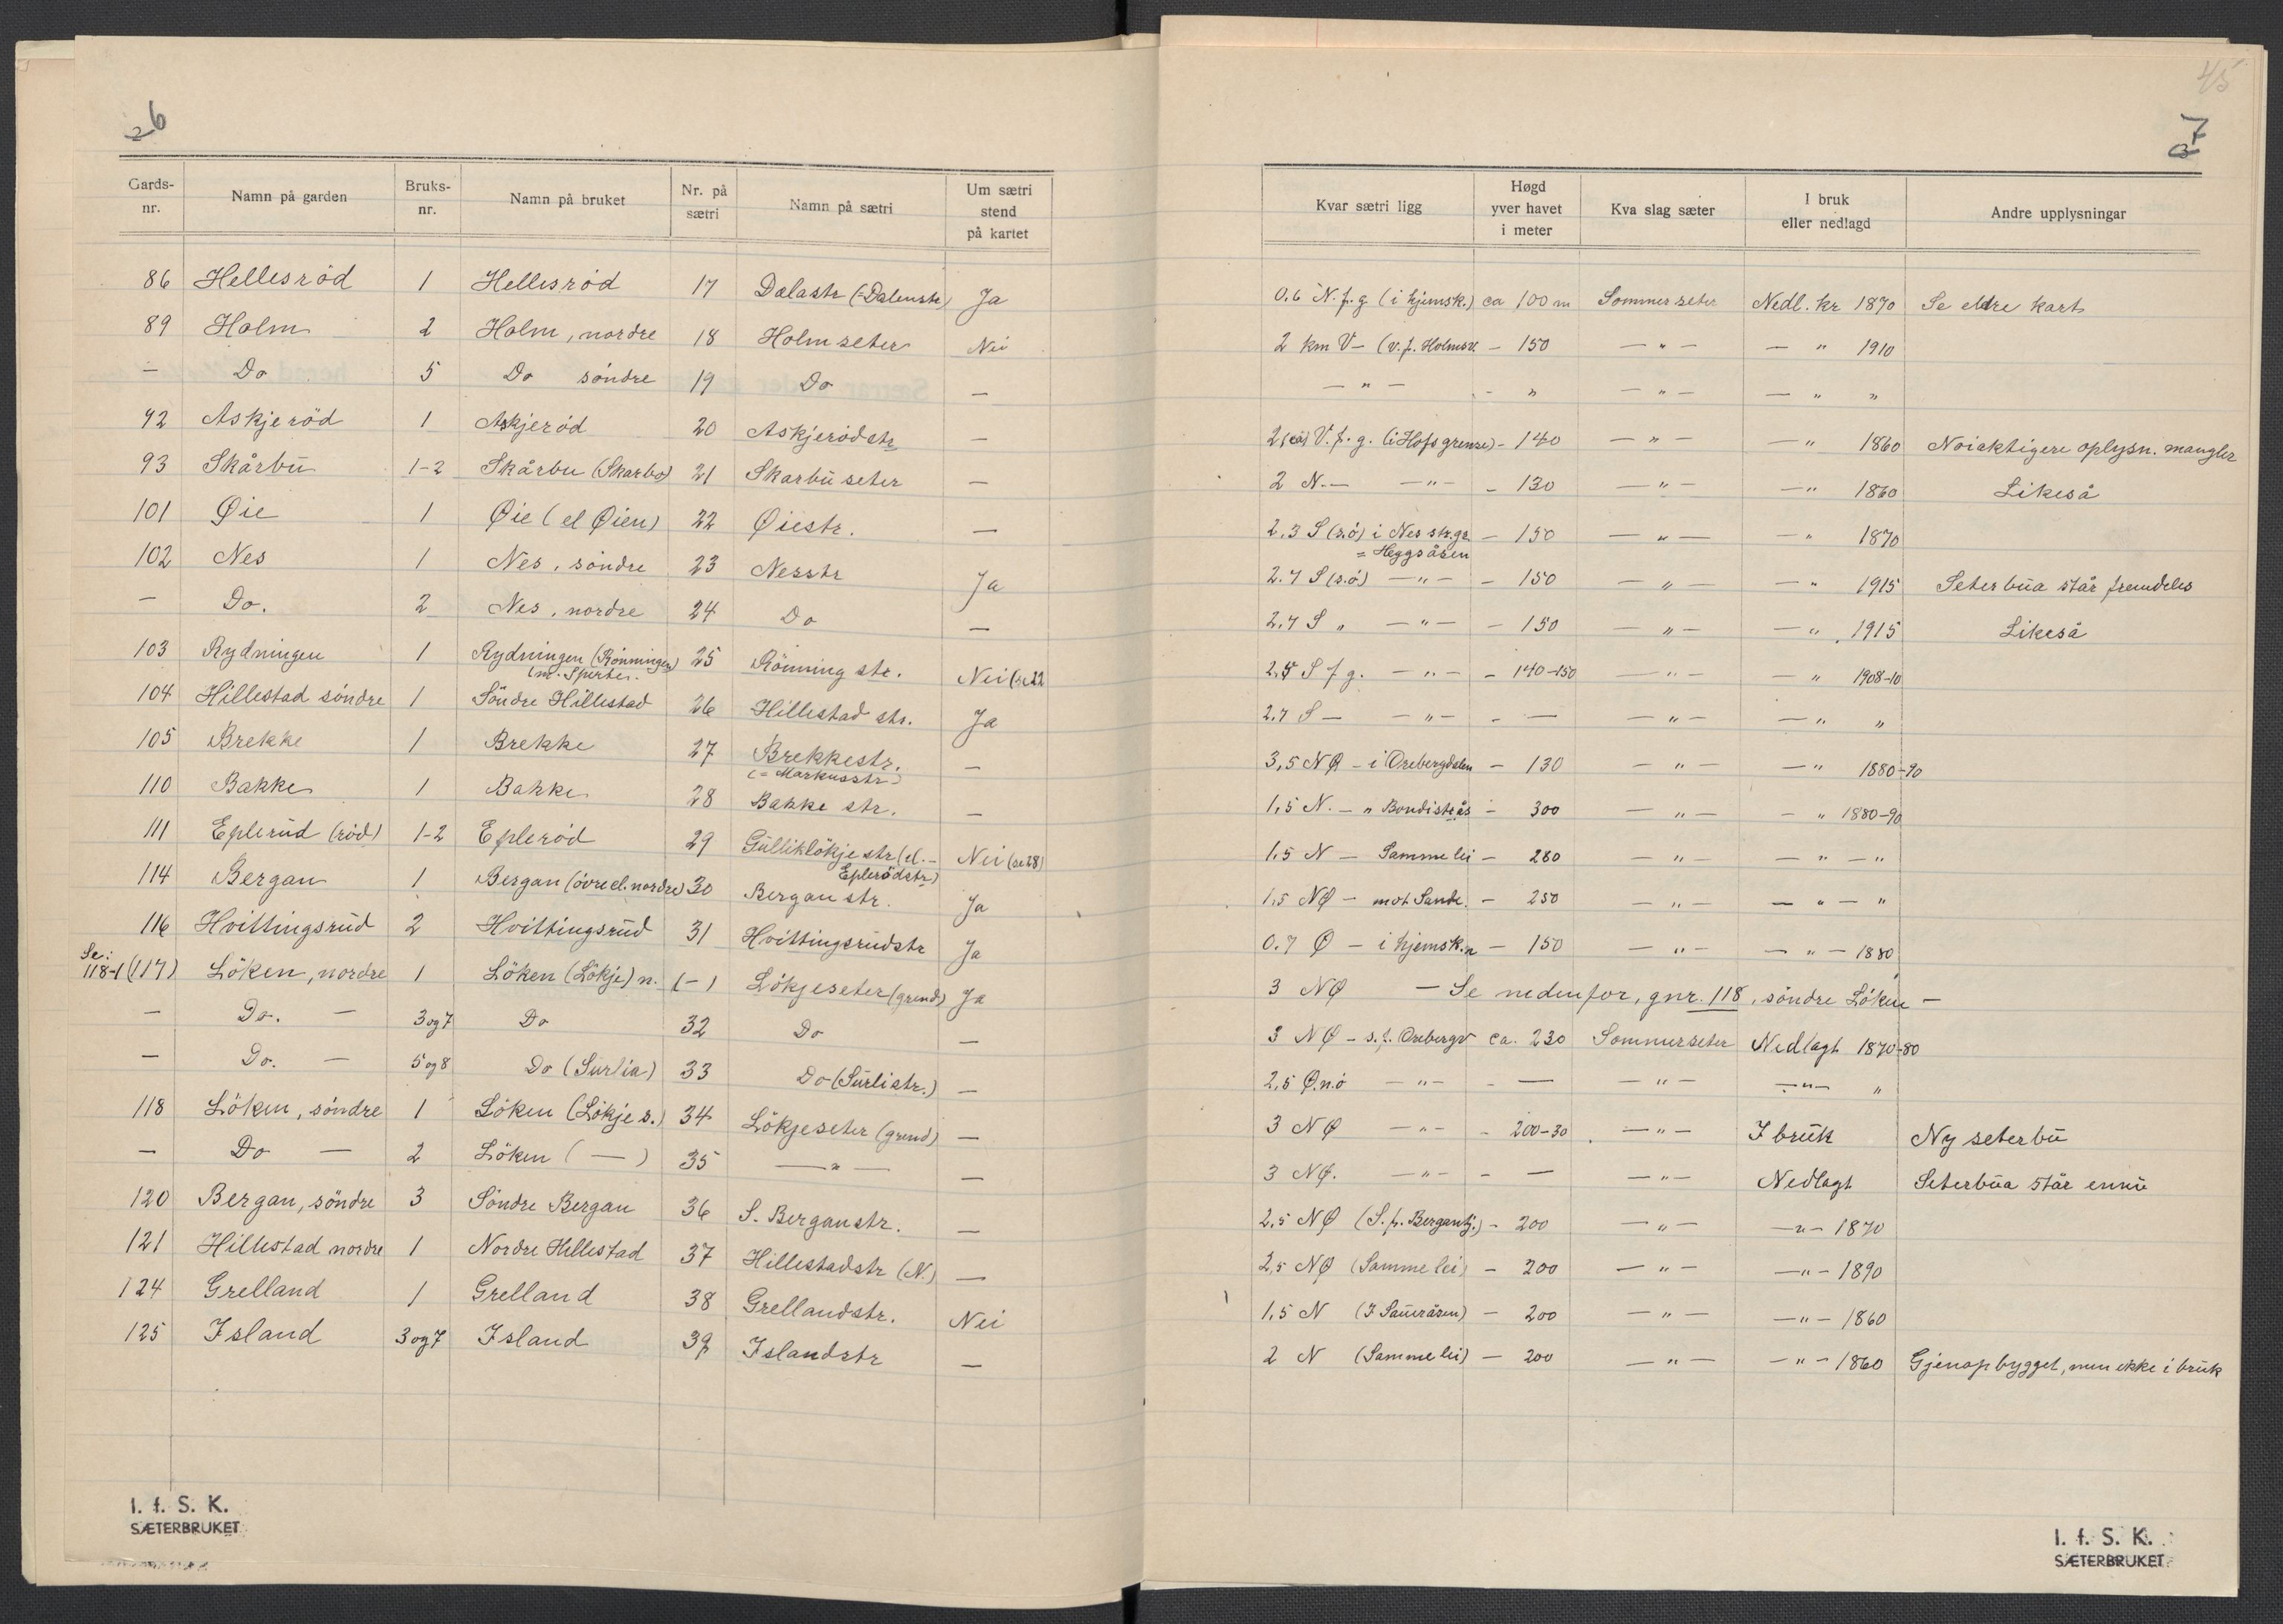 26
Gards-nr. Namn på garden Bruks-nr. Namn på bruket Nr. på sætri Namn på sætri Um sætri stend på kartet
86 Hellesröd 1 Hellesröd 17 Dalastr (=Dalenstr) Ja
89 Holm 2 Holm, nordre 18 Holmseter Nei
— Do 5 Do söndre 19 Do —
92 Askjeröd 1 Askjeröd 20 Askjerödstr —
93 Skårbu 1-2 Skårbu (Skarbo) 21 Skarbu seter —
101 Øie 1 Øie (el Øien) 22 Øiestr. —
102 Nes 1 Nes, söndre 23 Nesstr Ja
— Do. 2 Nes, nordre 24 Do —
103 Rydningen 1 Rydningen (Rönningen) 25 Rönning str. Nei (se 22
(m.
104 Hillestad söndre 1 Söndre Hillestad 26 Hillestad str. Ja
105 Brekke 1 Brekke 27 Brekkestr. —
(= Markusstr)
110 Bakke 1 Bakke 28 Bakke str. —
111 Eplerud (röd) 1-2 Epleröd 29 Gulliklökje str (el. — Nei (se 28)
Eplerödstr)
114 Bergan 1 Bergan (övre el. nordre) 30 Bergan str. Ja
116 Hvittingsrud 2 Hvittingsrud 31 Hvittingsrudstr Ja
Se:
118-1 (117) Löken, nordre 1 Löken (Lökje) n. (-) Lökjeseter (grend) Ja
— Do. — 3 og 7 Do 32 Do —
— Do. — 5 og 8 Do (Surlia) 33 Do (Surlistr.) —
118 Löken, söndre 1 Löken (Lökje s.) 34 Lökjeseter (grend) —
— Do — 2 Löken ( — ) 35 — " — —
120 Bergan, söndre 3 Söndre Bergan 36 S. Berganstr. —
121 Hillestad nordre 1 Nordre Hillestad 37 Hillestadstr (N.) —
124 Grelland 1 Grelland 38 Grellandstr. Nei
125 Island 3 og 7 Island 39 Islandstr —
I. f. S. K.
SÆTERBRUKET
45
7
3
Kvar sætri ligg Høgd yver havet i meter Kva slag sæter I bruk eller nedlagd Andre upplysningar
0.6 N. f. g (i hjemsk.) ca 100 m Sommerseter Nedl. kr 1870 Se eldre kart
2 km V — (v. f. Holmsv. — 150 — " — — " 1910
— " — - " — " — — " "
V. f. g. (i Hofs grense) - 140 — " — — " 1860 Noiaktigere oplysn. mangler
2 N. — — " — - 130 — " — — " 1860 Likeså
2.3 S (s.ö) i Nes str.gr. — 150 — " — — " 1870
= Heggsåsen
2.7 S (s.ö) — " — - 150 — " — — " 1915 Seterbua står fremdeles
2.7 S " — " — - 150 — " — — " 1915 Likeså
2.5 S f g. — " — - 140-150 — " — — " 1908-10
2.7 S — — " — - — — " — — " "
3,5 NØ — i Orebergdalen — 130 — " — — " 1880-90
1,5 N. — " Bondistrås — 300 — " — — " 1880-90
1.5 N — Samme lei — 280 — " — — " — "
1,5 NØ — mot Sande. — 250 — " — — " — "
0.7 Ø — i hjemsk.n — 150 — " — — " — 1880
3 NØ — Se nedenfor, gnr. 118, söndre Löken —
3 NØ — s. f. Orebergv ca. 230 Sommerseter Nedlagt 1870-80
2,5 Ø.n.ö — " — - — — " — — " — "
3 NØ — " — - 200-30 — " — I bruk Ny seterbu
3 NØ. — " — - — — " — Nedlagt Seterbua står ennu
2,5 NØ (S. f. Bergantj.) - 200 — " — — " — 1870
2,5 NØ (Samme lei) — 200 — " — — " — 1890
1,5 N (I Saueråsen) — 200 — " — " — 1860
2 N (Samme lei) — 200 — " — — " — 1860 Gjenopbygget, men ikke i bruk
I. f. S. K.
SÆTERBRUKET